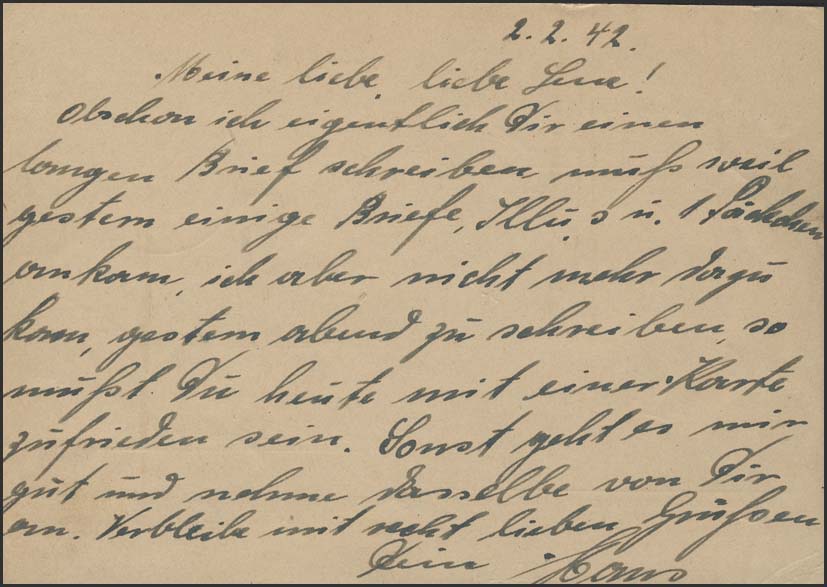 2. 2. 42.
Meine liebe, liebe Lene!
Obschon ich eigentlich Dir einen
langen Brief schreiben muß weil
gestern einige Briefe, Illu,s u. 1 Päckchen
ankam, ich aber nicht mehr dazu
kam, gestern abend zu schreiben, so
mußt Du heute mit einer Karte
zufrieden sein. Sonst geht es mir
gut und nehme dasselbe von Dir
an. Verbleibe mit recht lieben Grüßen
Dein Hans